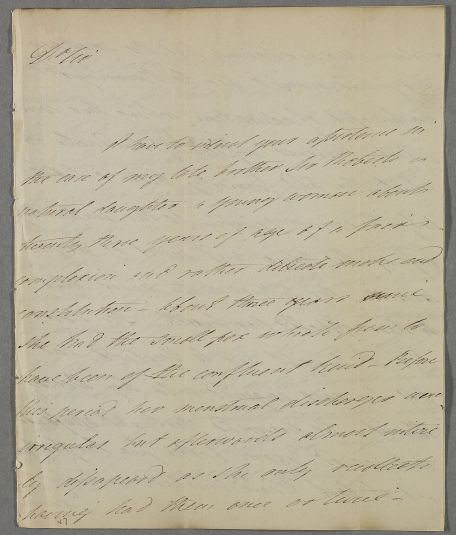 Dr Sir
I have to intreat your assistance in
the case of my late brother Sir Roberts
natural daughter a young woman about
twenty three years of age of a fair
complexion and rather delicate make and
constitution - About three years since
she had the small pox which from to
have been of the confluent kind - Before
this period her menstrual discharges were
irregular but afterwards almost intire
ly disapeared as she only recollects
having had them once or twice -
47